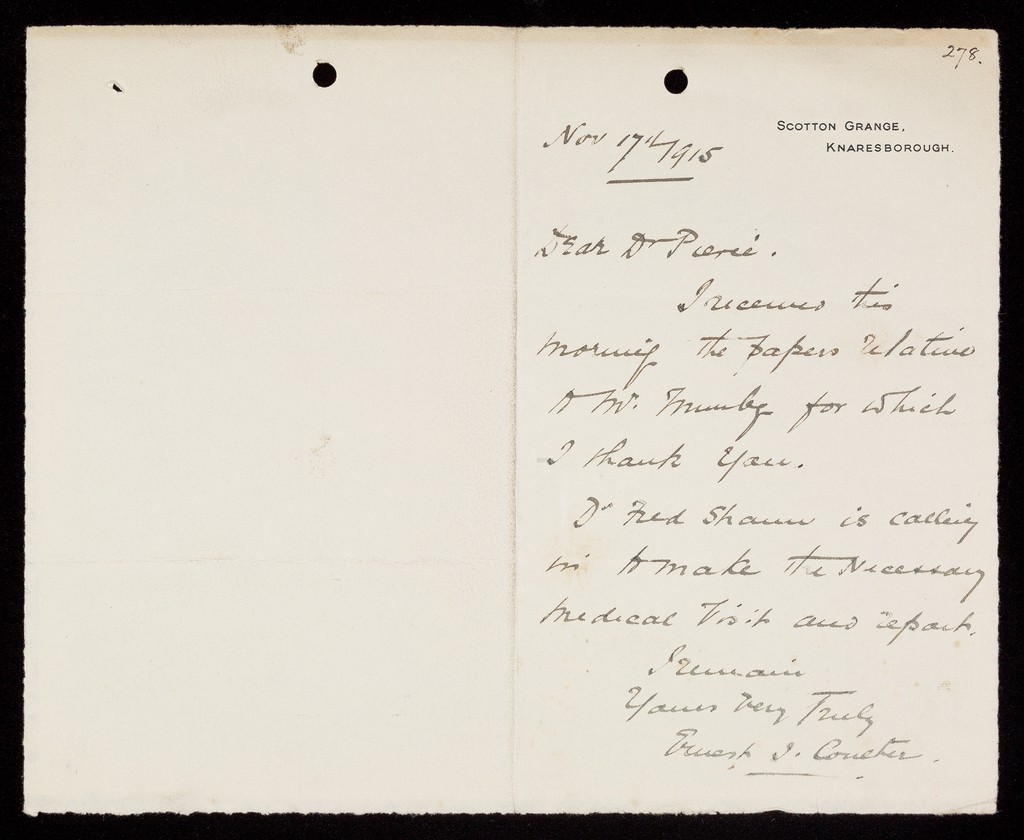 278.
SCOTTON GRANGE,
KNARESBOROUGH.
Nov 17th/1915
Dear Dr Pierce.
I received this
morning the papers relative
to Mr. Mumby for which
I thank you.
Dr Fred Shann is calling
in to make the Necessary
Medical Visit and report.
I remain
Yours Very Truly
Ernest I.